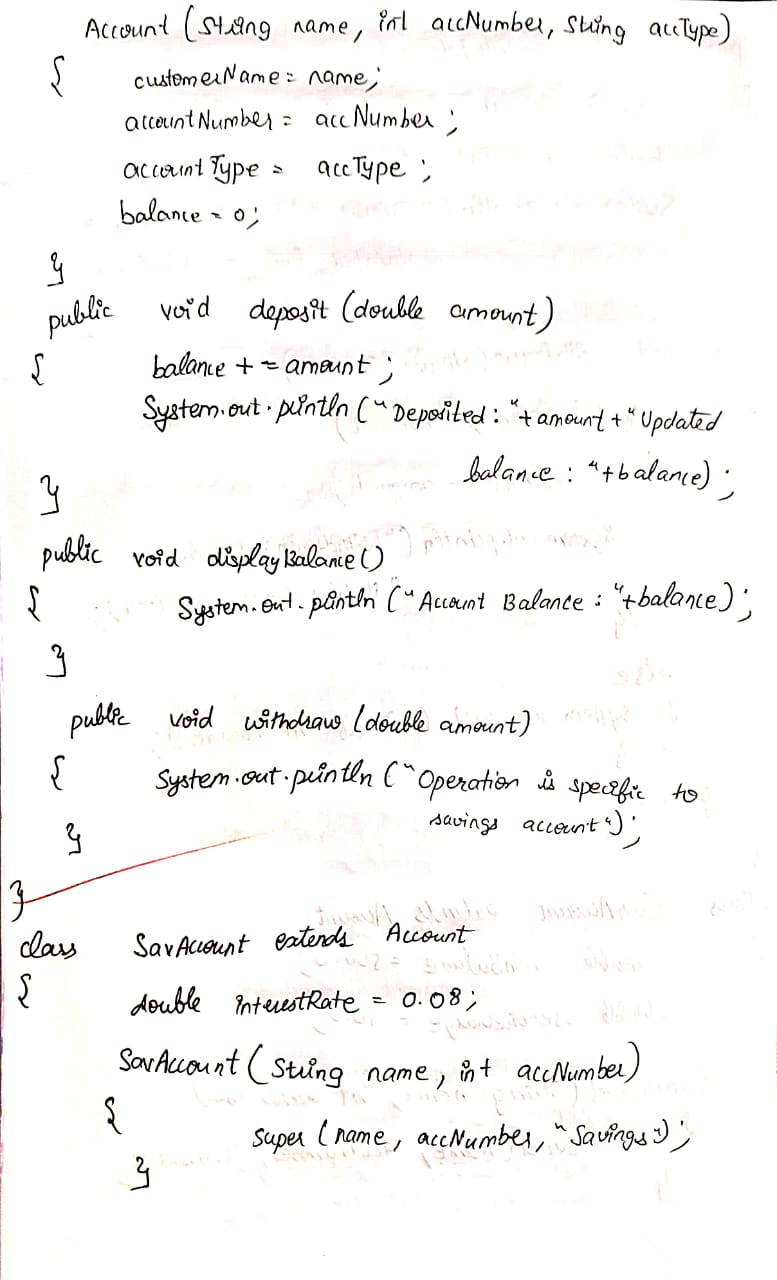 Account (String name, int accNumber, String accType)
{ customerName = name;
accountNumber = accNumber ;
accountType = accType ;
balance = 0;
}
public void deposit (double amount)
{ balance + = amount ;
System.out.println ("Deposited : "+ amount + "Updated
balance : "+balance) ;
}
public void displayBalance()
{ System.out.println ("Account Balance : "+balance);
}
public void withdraw (double amount)
{ System.out.println ("Operation is specific to
savings account");
}
}
class SavAccount extends Account
{ double interestRate = 0.08;
SavAccount (String name, int accNumber)
{ super (name, accNumber, "Savings");
}